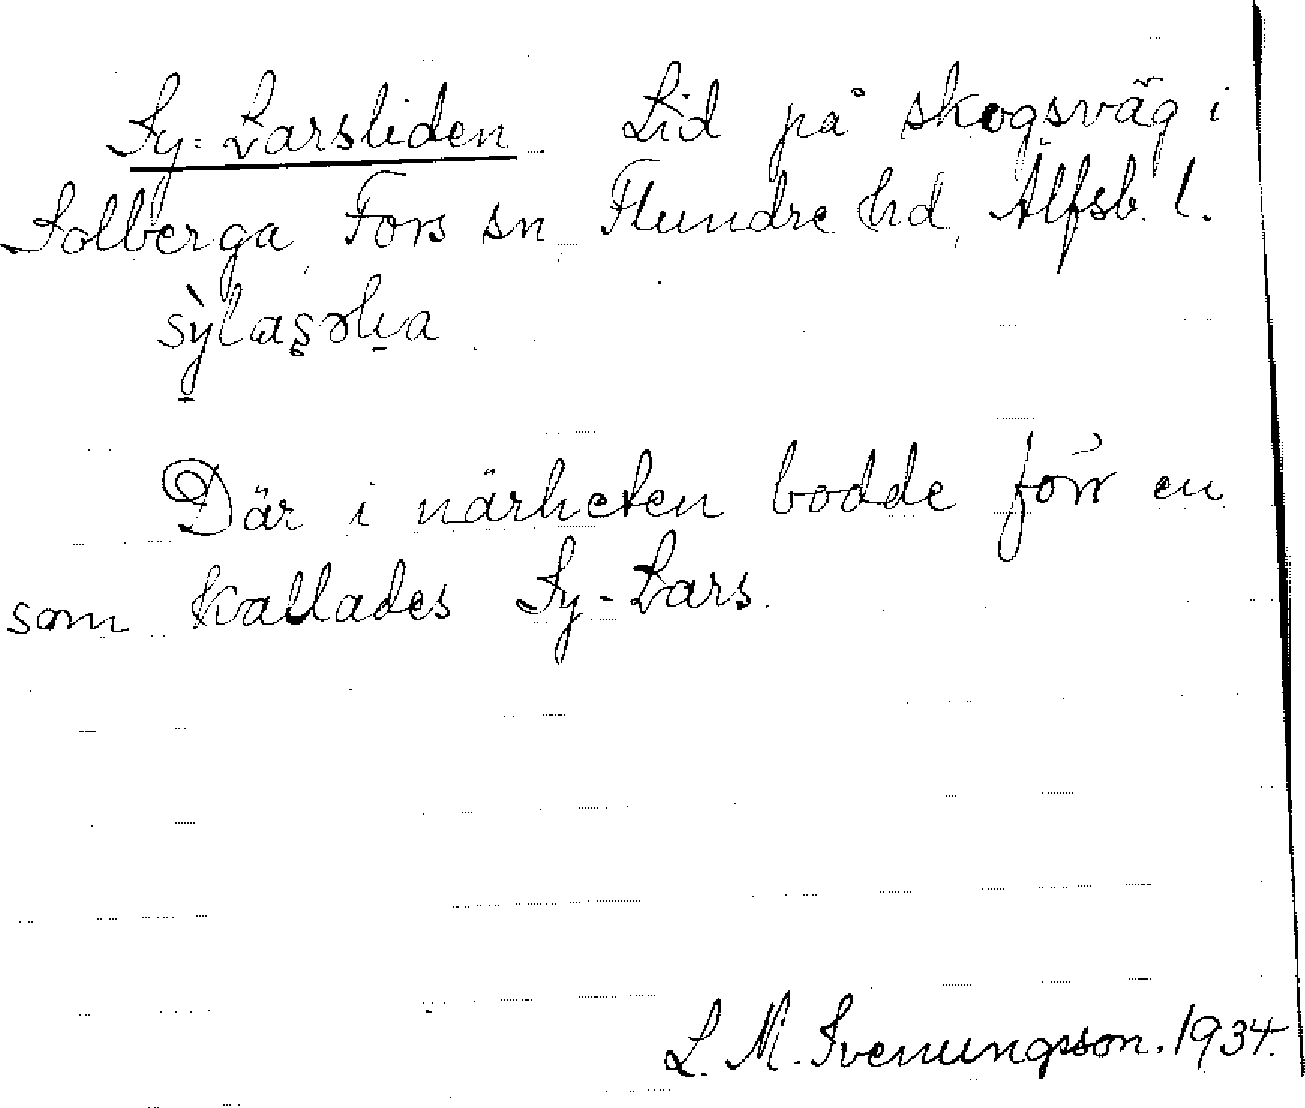 Sy-Larsliden Lid på skogsväg i
Solberga, Fors sn, Flundre hd, Älfsb. l.
Där i närheten bodde förr en
som kallades Sy-Lars.
L. M. Svenungsson. 1934.